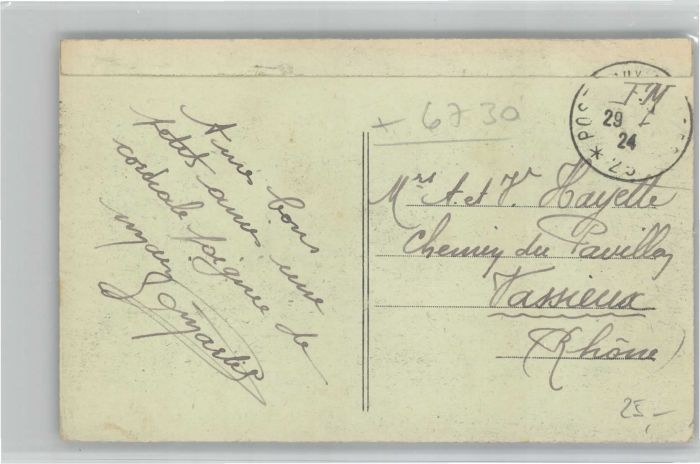 A mes bons
petits amis une
cordiale poignée de
mains
+ 6730
POS
29 - 1
24
Mrs A. et V. Hayette
Chemin du Pavillon
Vassieux
(Rhône)
25,-